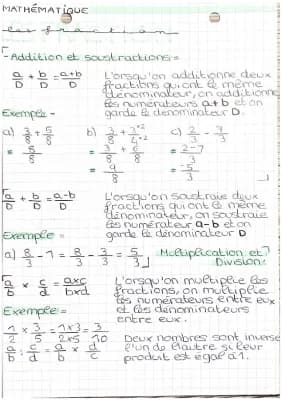 MATHÉMATIQUE
Les fractions
- Addition et soustractions =
a/D + b/D = a+b/D
Lorsqu'on additionne deux
fractions qui ont le même
dénominateur, on additionne
les numérateurs a+b et on
garde le dénominateur D.
Exemple -
a) 3/8 + 5/8
= 8/8
b) 3/8 + 3×2/4×2
= 3/8 + 6/8
= 9/8
c) 2/3 - 7/3
= 2-7/3
= -5/3
a/D + b/D = a-b/D
Lorsqu'on soustraie deux
fractions qui ont le même
dénominateur, on soustraie
les numérateur a-b et on
garde le dénominateur D
Exemple =
a) 8/3 - 1 = 8/3 - 3/3 = 5/3
Multiplication et
Division:
a/b × c/d = a×c/b×d
Lorsqu'on multiplie les
fractions, on multiplie
les numérateurs entre eux
et les dénominateurs
entre eux.
Exemple =
1/2 × 3/5 = 1×3/2×5 = 3/10
a/b : c/d = a/b × d/c
Deux nombres sont inverse
l'un de l'autre si leur
produit est égal à 1.